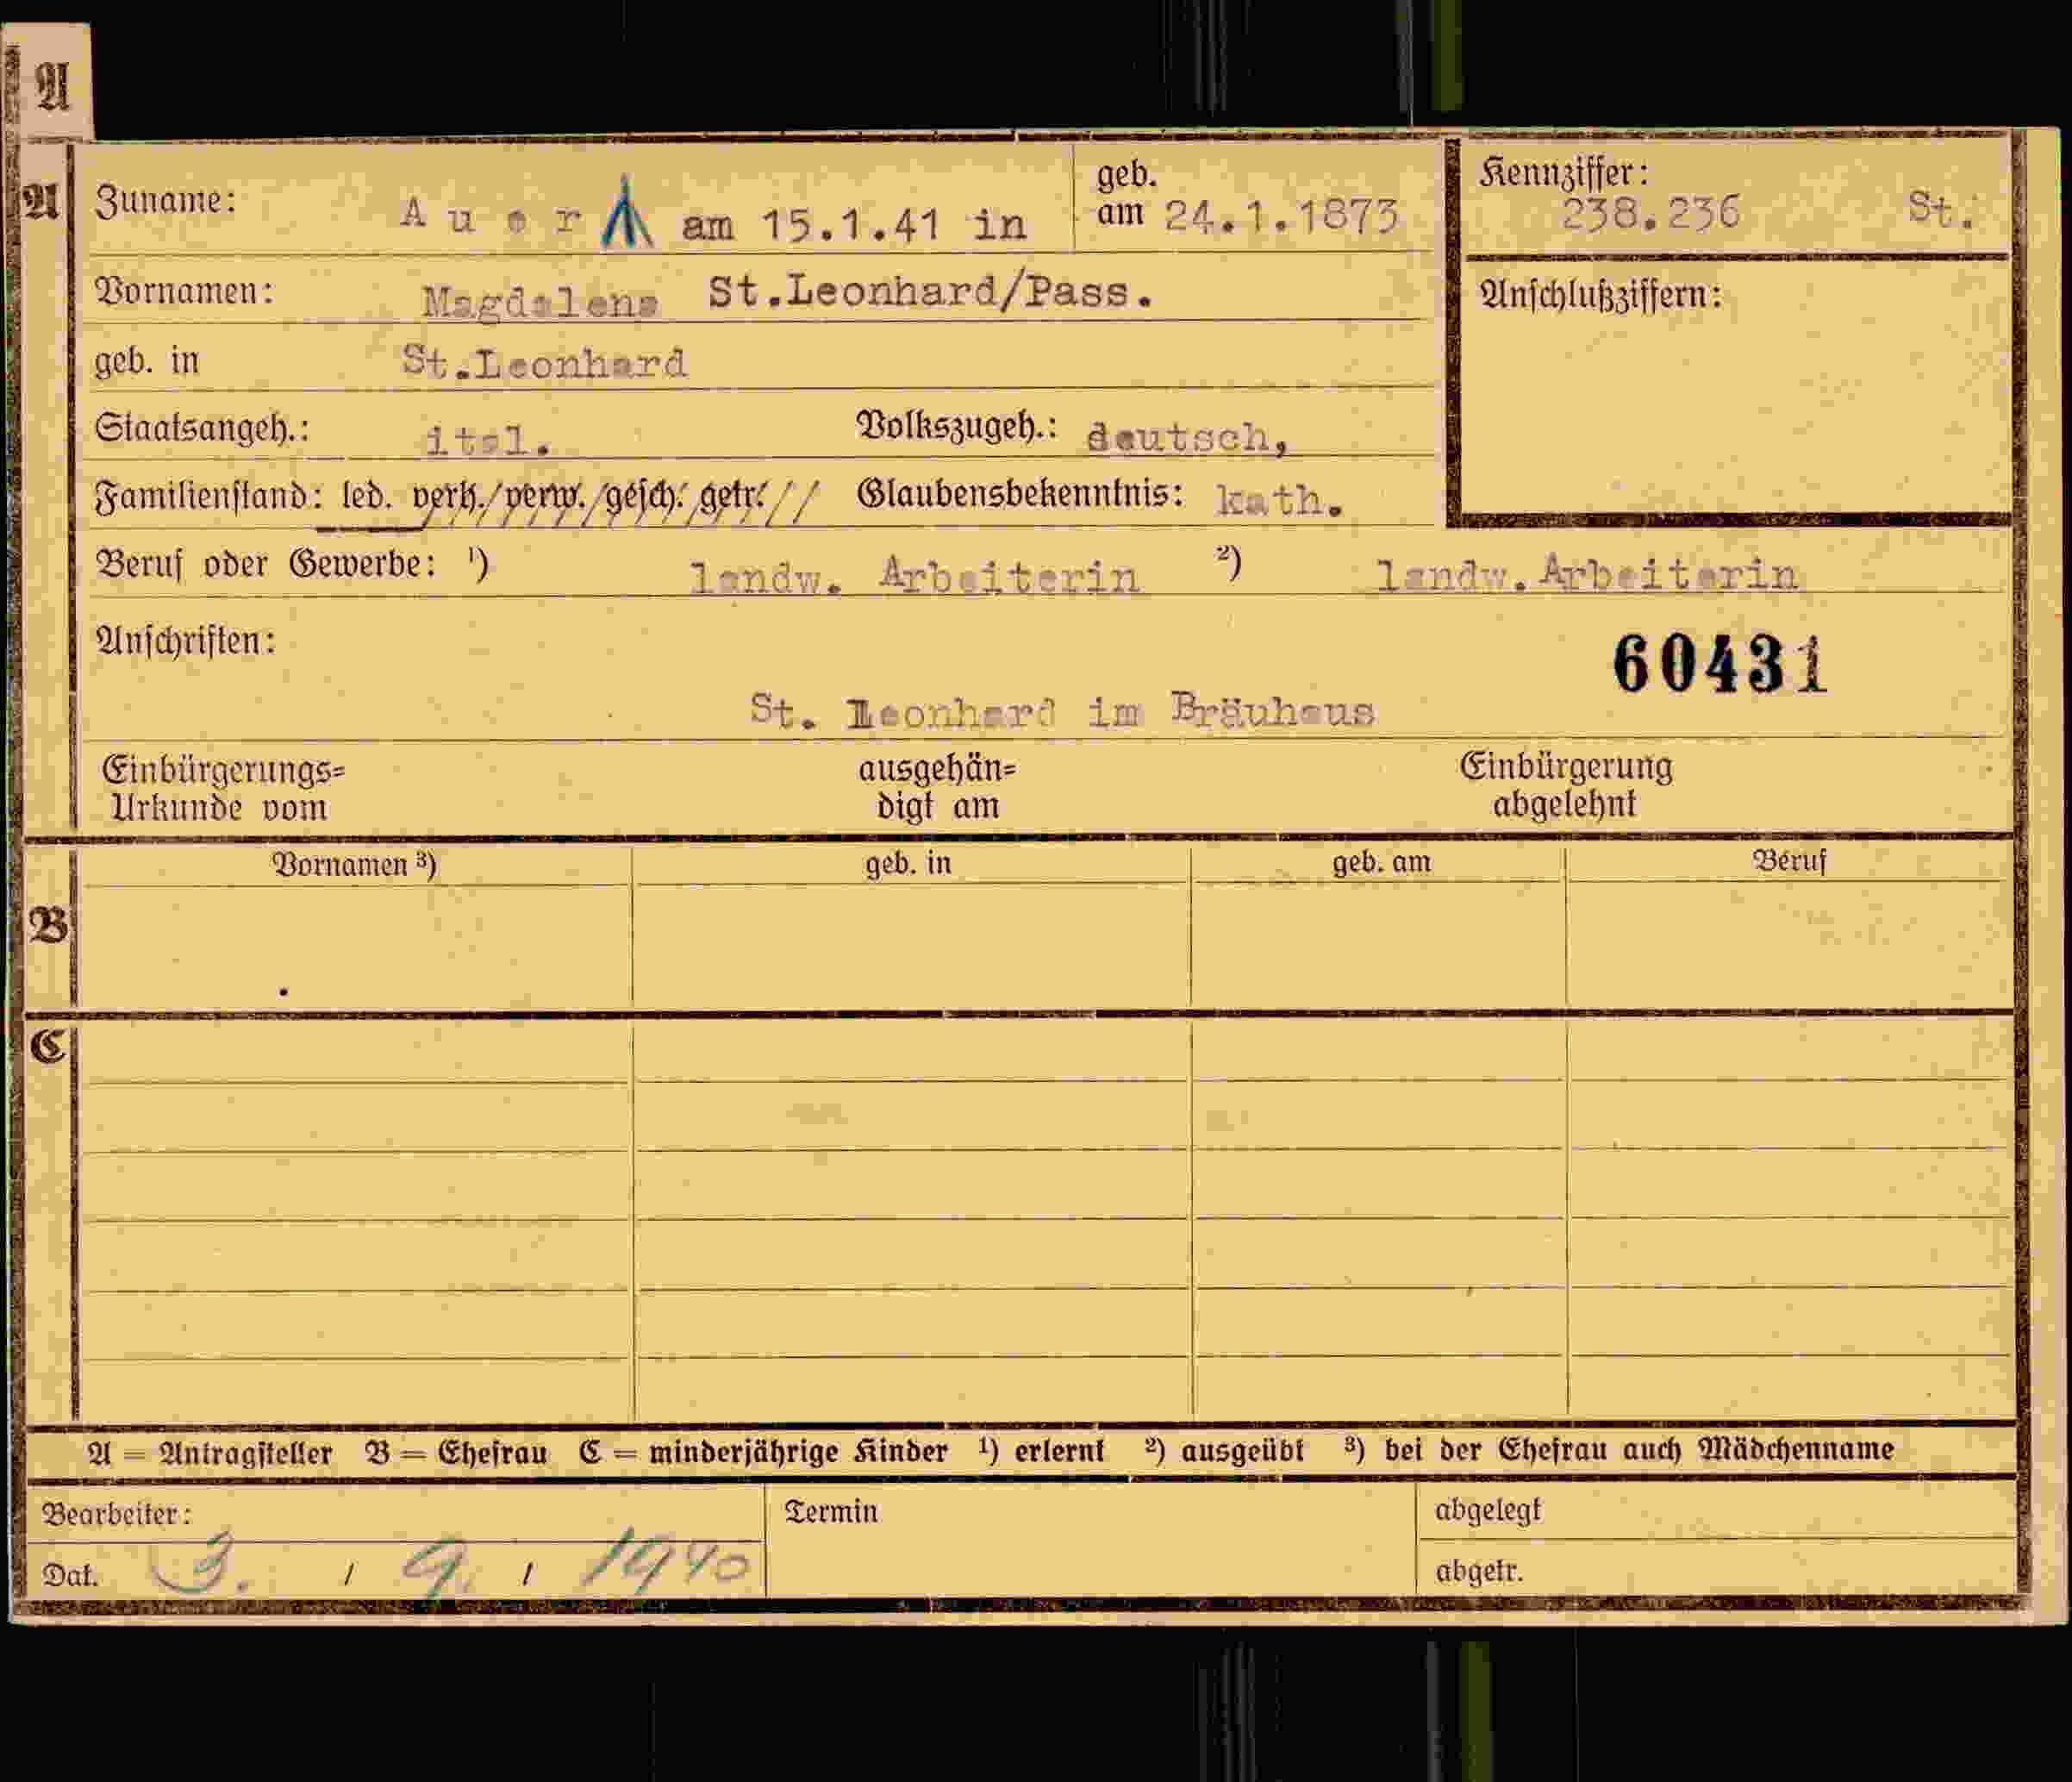 A
A
Zuname: A u e r am 15.1.41 in geb. am 24.1.1873
Kennziffer: 238.236 St.
Vornamen: Magdalena St.Leonhard/Pass.
Anschlußziffern:
geb. in St.Leonhard
Staatsangeh.: ital. Volkszugeh.: deutsch,
Familienstand: led. verh./verw./gesch. getr. Glaubensbekenntnis: kath.
Beruf oder Gewerbe: ¹) landw. Arbeiterin ²) landw. Arbeiterin
Anschriften:
60431
St. Leonhard im Bräuhaus
Einbürgerungs= ausgehän= Einbürgerung
Urkunde vom digt am abgelehnt
Vornamen ³) geb. in geb. am Beruf
B
C
A = Antragsteller B = Ehefrau C = minderjährige Kinder ¹) erlernt ²) ausgeübt ³) bei der Ehefrau auch Mädchenname
Bearbeiter: Termin abgelegt
Dat. 3. / 9. / 1940 abgetr.